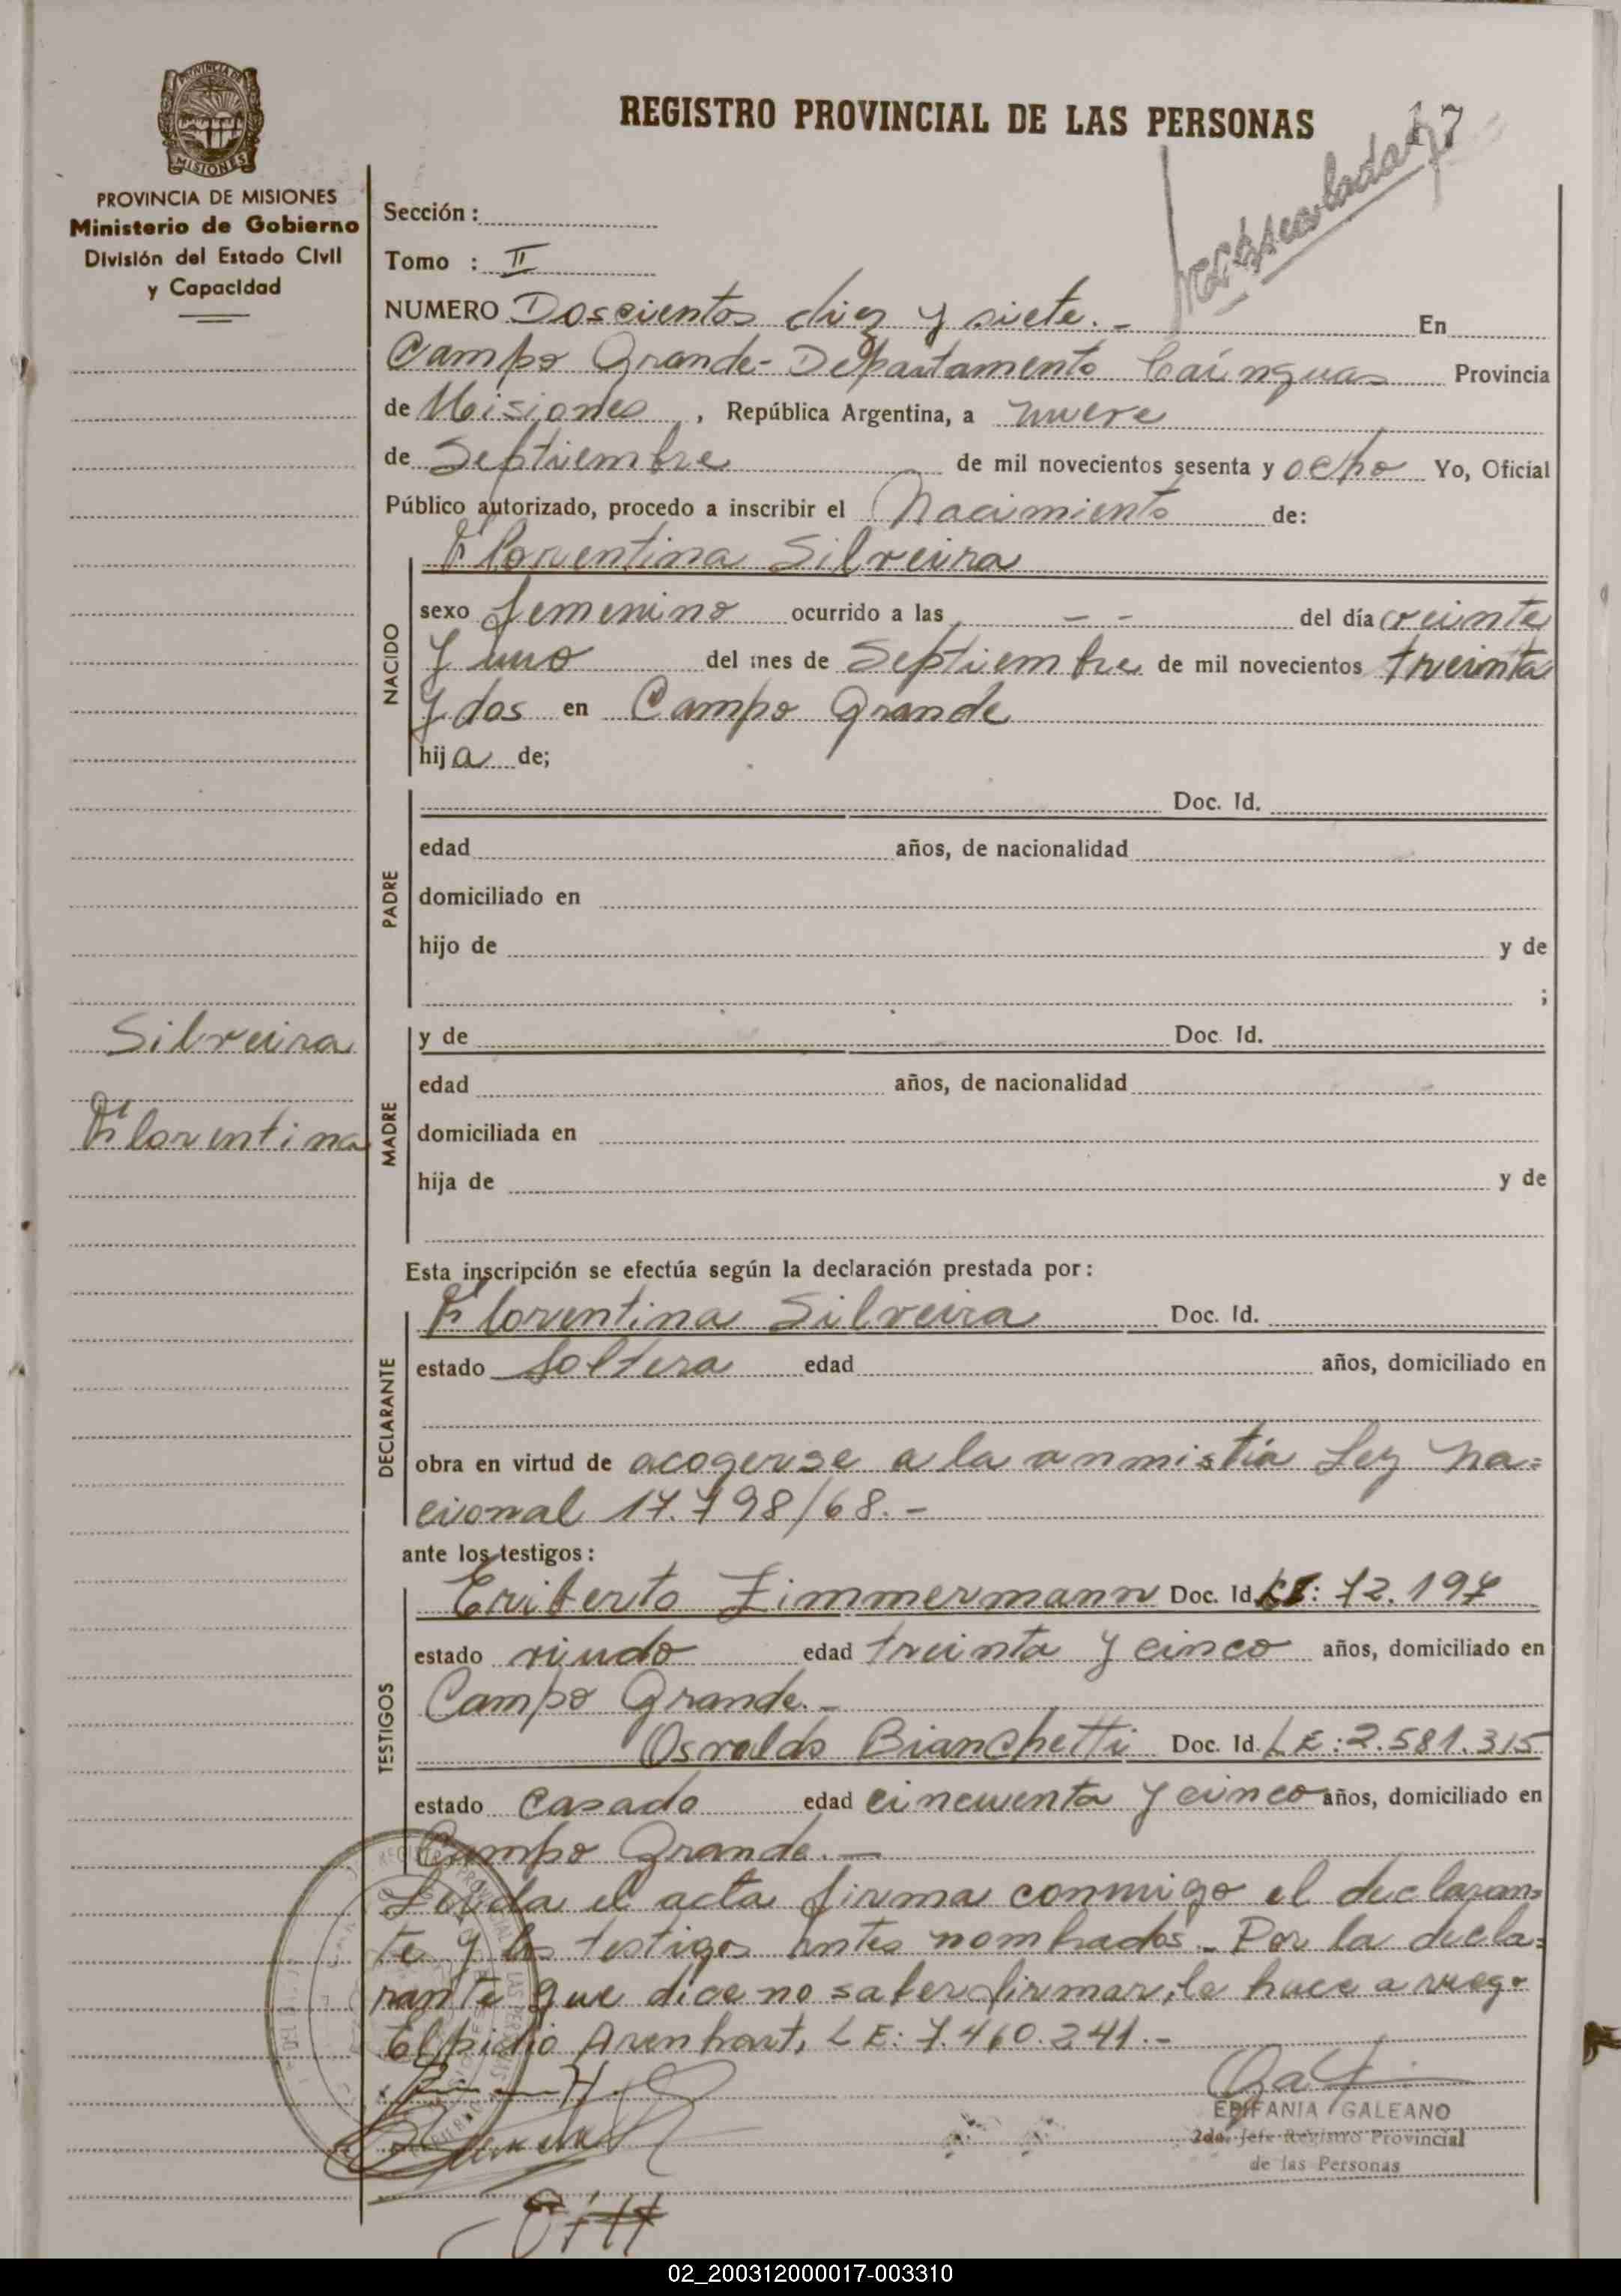 REGISTRO PROVINCIAL DE LAS PERSONAS
17
PROVINCIA DE MISIONES
MISIONES
PROVINCIA DE MISIONES
Ministerio de Gobierno
División del Estado Civil
y Capacidad
Sección :
Tomo : II
NUMERO Doscientos diez y siete.- En
Campo Grande- Departamento Caínguas Provincia
de Misiones , República Argentina, a nueve
de Septiembre de mil novecientos sesenta y ocho Yo, Oficial
Público autorizado, procedo a inscribir el Nacimiento de:
Florentina Silveira
NACIDO
sexo femenino ocurrido a las - - del día veinte
y uno del mes de Septiembre de mil novecientos treinta
y dos en Campo Grande
hija de;
PADRE
Doc. Id.
edad años, de nacionalidad
domiciliado en
hijo de y de
;
Silveira
Florentina
MADRE
y de Doc. Id.
edad años, de nacionalidad
domiciliada en
hija de y de
Esta inscripción se efectúa según la declaración prestada por:
DECLARANTE
Florentina Silveira Doc. Id.
estado Soltera edad años, domiciliado en
obra en virtud de acogerse a la anmistia Ley Na=
cional 17.798/68.-
ante los testigos:
TESTIGOS
Eriberto Zimmermann Doc. Id : 72.197
estado viudo edad treinta y cinco años, domiciliado en
Campo Grande.-
Osvaldo Bianchetti Doc. Id. LE: 2.581.315
estado casado edad cincuenta y cinco años, domiciliado en
Campo Grande.-
Leida el acta firma conmigo el declaran=
te y los testigos antes nombrados.- Por la decla=
rante que dice no saber firmar, lo hace a ruego
Elpidio Arenhart, LE: 7.460.241.-
EPIFANIA GALEANO
2do. Jefe Registro Provincial
de las Personas
02_200312000017-003310